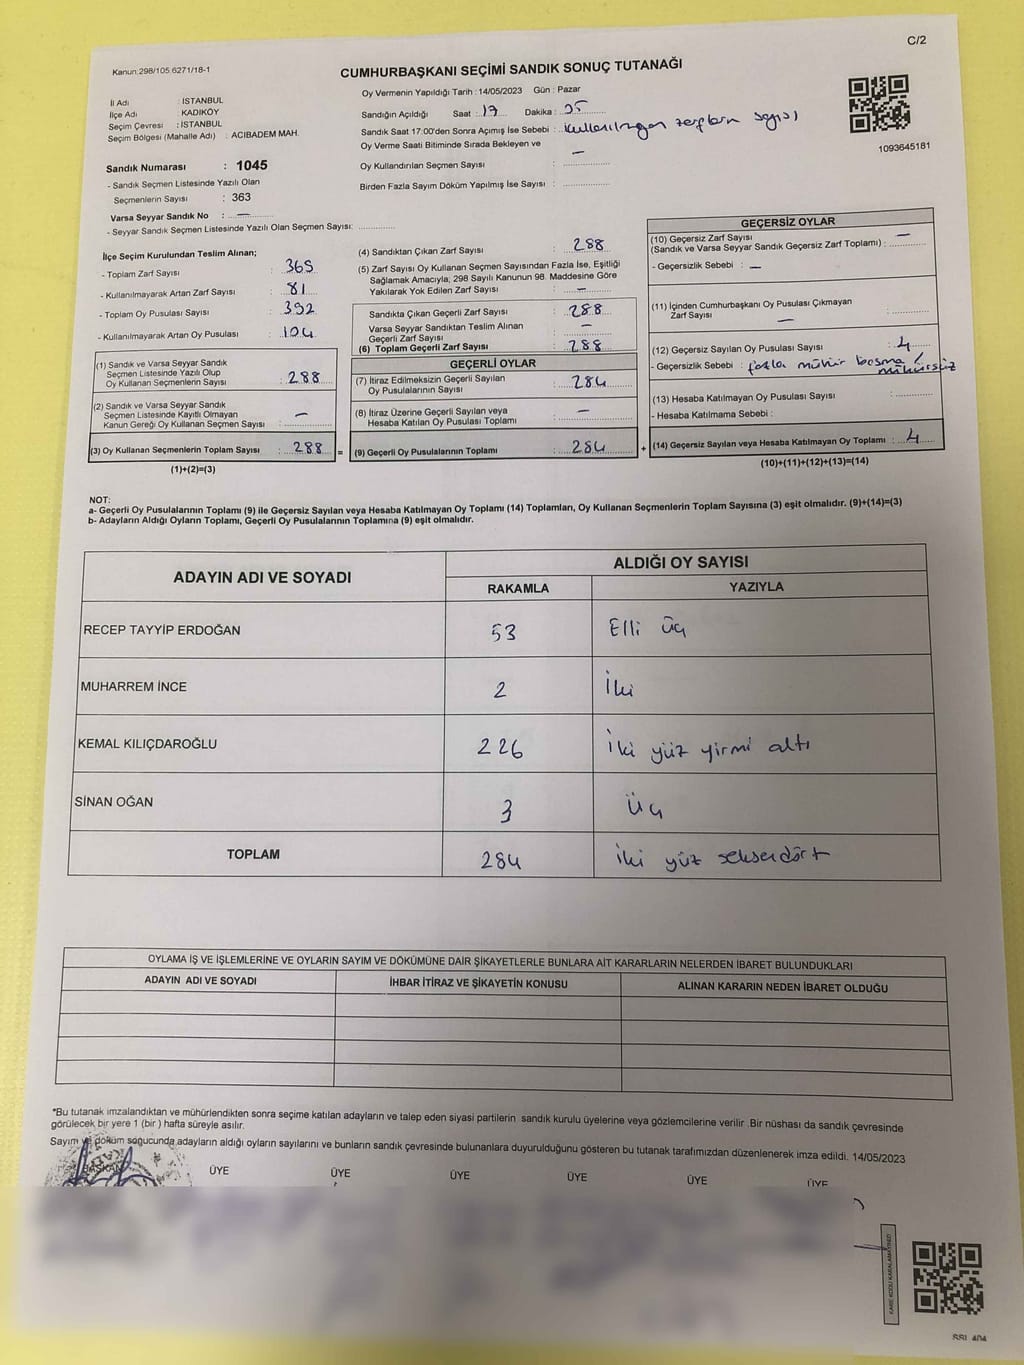 C/2
Kanun:298/105 6271/18-1
CUMHURBAŞKANI SEÇİMİ SANDIK SONUÇ TUTANAĞI
İl Adı : İSTANBUL
İlçe Adı : KADIKÖY
Seçim Çevresi : İSTANBUL
Seçim Bölgesi (Mahalle Adı) : ACIBADEM MAH.
Sandık Numarası : 1045
- Sandık Seçmen Listesinde Yazılı Olan
Seçmenlerin Sayısı : 363
Varsa Seyyar Sandık No : —
- Seyyar Sandık Seçmen Listesinde Yazılı Olan Seçmen Sayısı:
Oy Vermenin Yapıldığı Tarih : 14/05/2023 Gün : Pazar
Sandığın Açıldığı Saat : 17 Dakika : 35
Sandık Saat 17:00'den Sonra Açımış İse Sebebi : kullanılmayan zarfların sayısı
Oy Verme Saati Bitiminde Sırada Bekleyen ve
Oy Kullandırılan Seçmen Sayısı : —
Birden Fazla Sayım Döküm Yapılmış İse Sayısı :
1093645181
İlçe Seçim Kurulundan Teslim Alınan;
- Toplam Zarf Sayısı : 365
- Kullanılmayarak Artan Zarf Sayısı : 81
- Toplam Oy Pusulası Sayısı : 392
- Kullanılmayarak Artan Oy Pusulası : 104
(1) Sandık ve Varsa Seyyar Sandık
Seçmen Listesinde Yazılı Olup
Oy Kullanan Seçmenlerin Sayısı : 288
(2) Sandık ve Varsa Seyyar Sandık
Seçmen Listesinde Kayıtlı Olmayan
Kanun Gereği Oy Kullanan Seçmen Sayısı : —
(3) Oy Kullanan Seçmenlerin Toplam Sayısı : 288 =
(1)+(2)=(3)
(4) Sandıktan Çıkan Zarf Sayısı : 288
(5) Zarf Sayısı Oy Kullanan Seçmen Sayısından Fazla İse, Eşitliği
Sağlamak Amacıyla; 298 Sayılı Kanunun 98. Maddesine Göre
Yakılarak Yok Edilen Zarf Sayısı : —
Sandıkta Çıkan Geçerli Zarf Sayısı : 288
Varsa Seyyar Sandıktan Teslim Alınan
Geçerli Zarf Sayısı : —
(6) Toplam Geçerli Zarf Sayısı : 288
GEÇERLİ OYLAR
(7) İtiraz Edilmeksizin Geçerli Sayılan
Oy Pusulalarının Sayısı : 284
(8) İtiraz Üzerine Geçerli Sayılan veya
Hesaba Katılan Oy Pusulası Toplamı : —
(9) Geçerli Oy Pusulalarının Toplamı : 284 +
GEÇERSİZ OYLAR
(10) Geçersiz Zarf Sayısı —
(Sandık ve Varsa Seyyar Sandık Geçersiz Zarf Toplamı) :
- Geçersizlik Sebebi : —
(11) İçinden Cumhurbaşkanı Oy Pusulası Çıkmayan
Zarf Sayısı —
(12) Geçersiz Sayılan Oy Pusulası Sayısı : 4
- Geçersizlik Sebebi : fazla mühür basma / mühürsüz
(13) Hesaba Katılmayan Oy Pusulası Sayısı :
- Hesaba Katılmama Sebebi :
(14) Geçersiz Sayılan veya Hesaba Katılmayan Oy Toplamı : 4
(10)+(11)+(12)+(13)=(14)
NOT:
a- Geçerli Oy Pusulalarının Toplamı (9) ile Geçersiz Sayılan veya Hesaba Katılmayan Oy Toplamı (14) Toplamları, Oy Kullanan Seçmenlerin Toplam Sayısına (3) eşit olmalıdır. (9)+(14)=(3)
b- Adayların Aldığı Oyların Toplamı, Geçerli Oy Pusulalarının Toplamına (9) eşit olmalıdır.
ADAYIN ADI VE SOYADI
ALDIĞI OY SAYISI
RAKAMLA YAZIYLA
RECEP TAYYİP ERDOĞAN 53 Elli üç
MUHARREM İNCE 2 İki
KEMAL KILIÇDAROĞLU 226 İki yüz yirmi altı
SİNAN OĞAN 3 Üç
TOPLAM 284 İki yüz seksendört
OYLAMA İŞ VE İŞLEMLERİNE VE OYLARIN SAYIM VE DÖKÜMÜNE DAİR ŞİKAYETLERLE BUNLARA AİT KARARLARIN NELERDEN İBARET BULUNDUKLARI
ADAYIN ADI VE SOYADI İHBAR İTİRAZ VE ŞİKAYETİN KONUSU ALINAN KARARIN NEDEN İBARET OLDUĞU
*Bu tutanak imzalandıktan ve mühürlendikten sonra seçime katılan adayların ve talep eden siyasi partilerin sandık kurulu üyelerine veya gözlemcilerine verilir .Bir nüshası da sandık çevresinde
görülecek bir yere 1 (bir ) hafta süreyle asılır.
Sayım ve döküm sonucunda adayların aldığı oyların sayılarını ve bunların sandık çevresinde bulunanlara duyurulduğunu gösteren bu tutanak tarafımızdan düzenlenerek imza edildi. 14/05/2023
BAŞKAN ÜYE ÜYE ÜYE ÜYE ÜYE ÜYE
KARE KODU KARALAMAYINIZ!